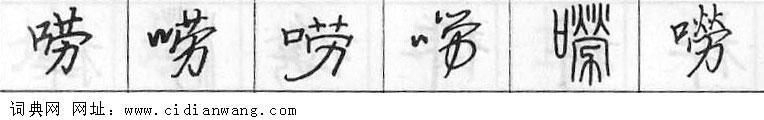 唠 唠 唠 唠 嘮 嘮
词典网 网址：www.cidianwang.com